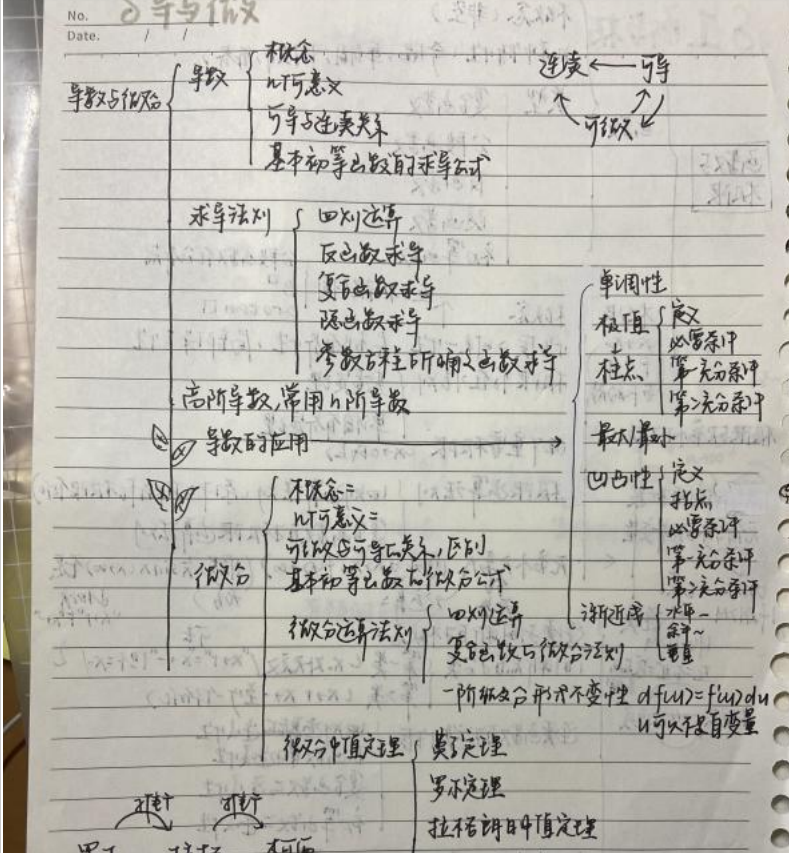 No.
Date. / /
导与微
导数与微分
导数
概念
几何意义
可导与连续关系
基本初等函数的求导公式
连续 ← 可导
可微
求导法则
四则运算
反函数求导
复合函数求导
隐函数求导
参数方程所确定函数求导
高阶导数,常用n阶导数
导数的应用
单调性
极值
定义
必要条件
第一充分条件
第二充分条件
驻点
最大/最小
凹凸性
定义
拐点
必要条件
第一充分条件
第二充分条件
渐近线
水平~
斜~
垂直
微分
概念=
几何意义=
可微与可导的关系,区别
基本初等函数的微分公式
微分运算法则
四则运算
复合函数的微分法则
一阶微分形式不变性 df(u)=f'(u)du
u可以不是自变量
微分中值定理
费马定理
罗尔定理
拉格朗日中值定理
推广
推广
罗尔 拉格 柯西